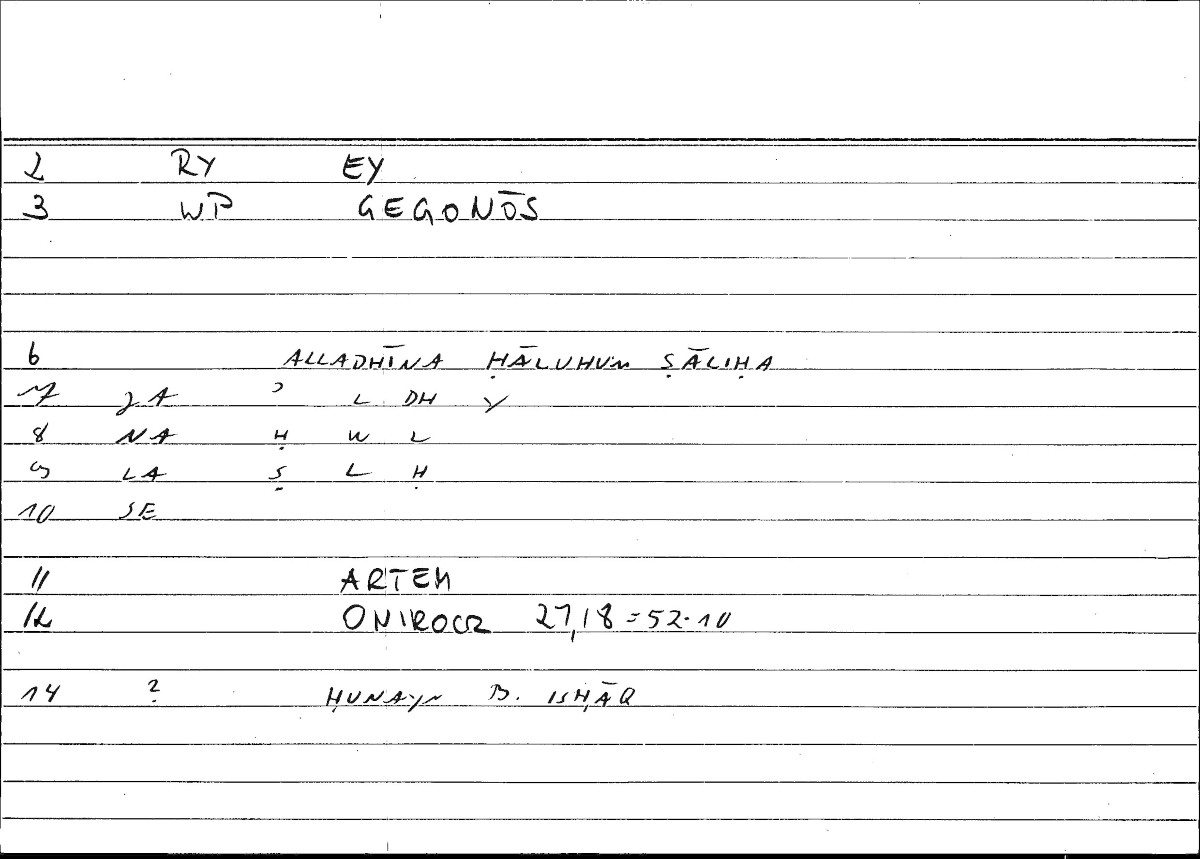 2 RY EY
3 WP GEGONŌS
6 ALLADHĪNA ḤĀLUHUM ṢĀLIḤA
7 JA ʾ L DH Y
8 NA Ḥ W L
9 LA Ṣ L Ḥ
10 SE
11 ARTEM
12 ONIROCR 27,18=52.10
14 ? ḤUNAYN B. ISḤĀQ